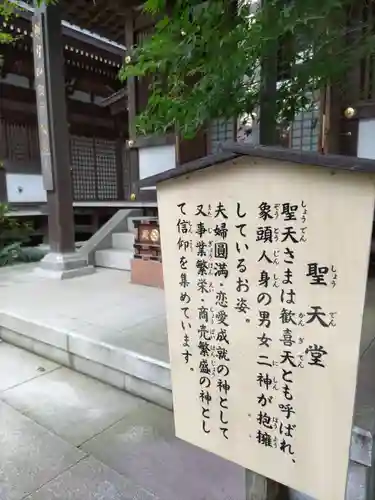 聖天堂
聖天さまは歓喜天とも呼ばれ、
象頭人身の男女二神が抱擁
しているお姿。
夫婦円満・恋愛成就の神として
又事業繁栄・商売繁盛の神とし
て信仰を集めています。